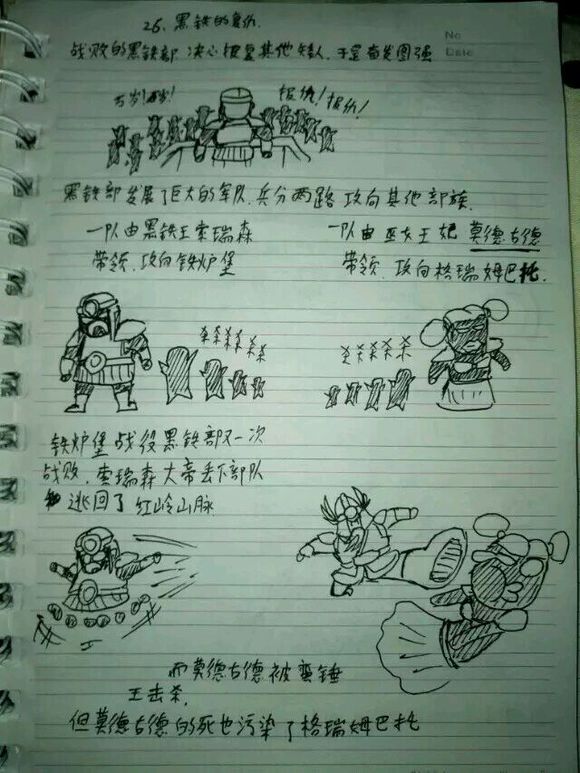 26. 黑铁的复仇
No
Date
战败的黑铁部 决心报复其他矮人,于是奋发图强
万岁!万岁!
报仇!报仇!
黑铁部发展了巨大的军队,兵分两路 攻向其他部族.
一队由黑铁王索瑞森
带领,攻向铁炉堡
一队由巫女王妃 莫德古德
带领,攻向格瑞姆巴托.
杀杀杀杀杀
杀杀杀杀杀
铁炉堡战役黑铁部又一次
战败,索瑞森大帝丢下部队
逃回了红岭山脉
而莫德古德被蛮锤
王击杀,
但莫德古德的死也污染了格瑞姆巴托